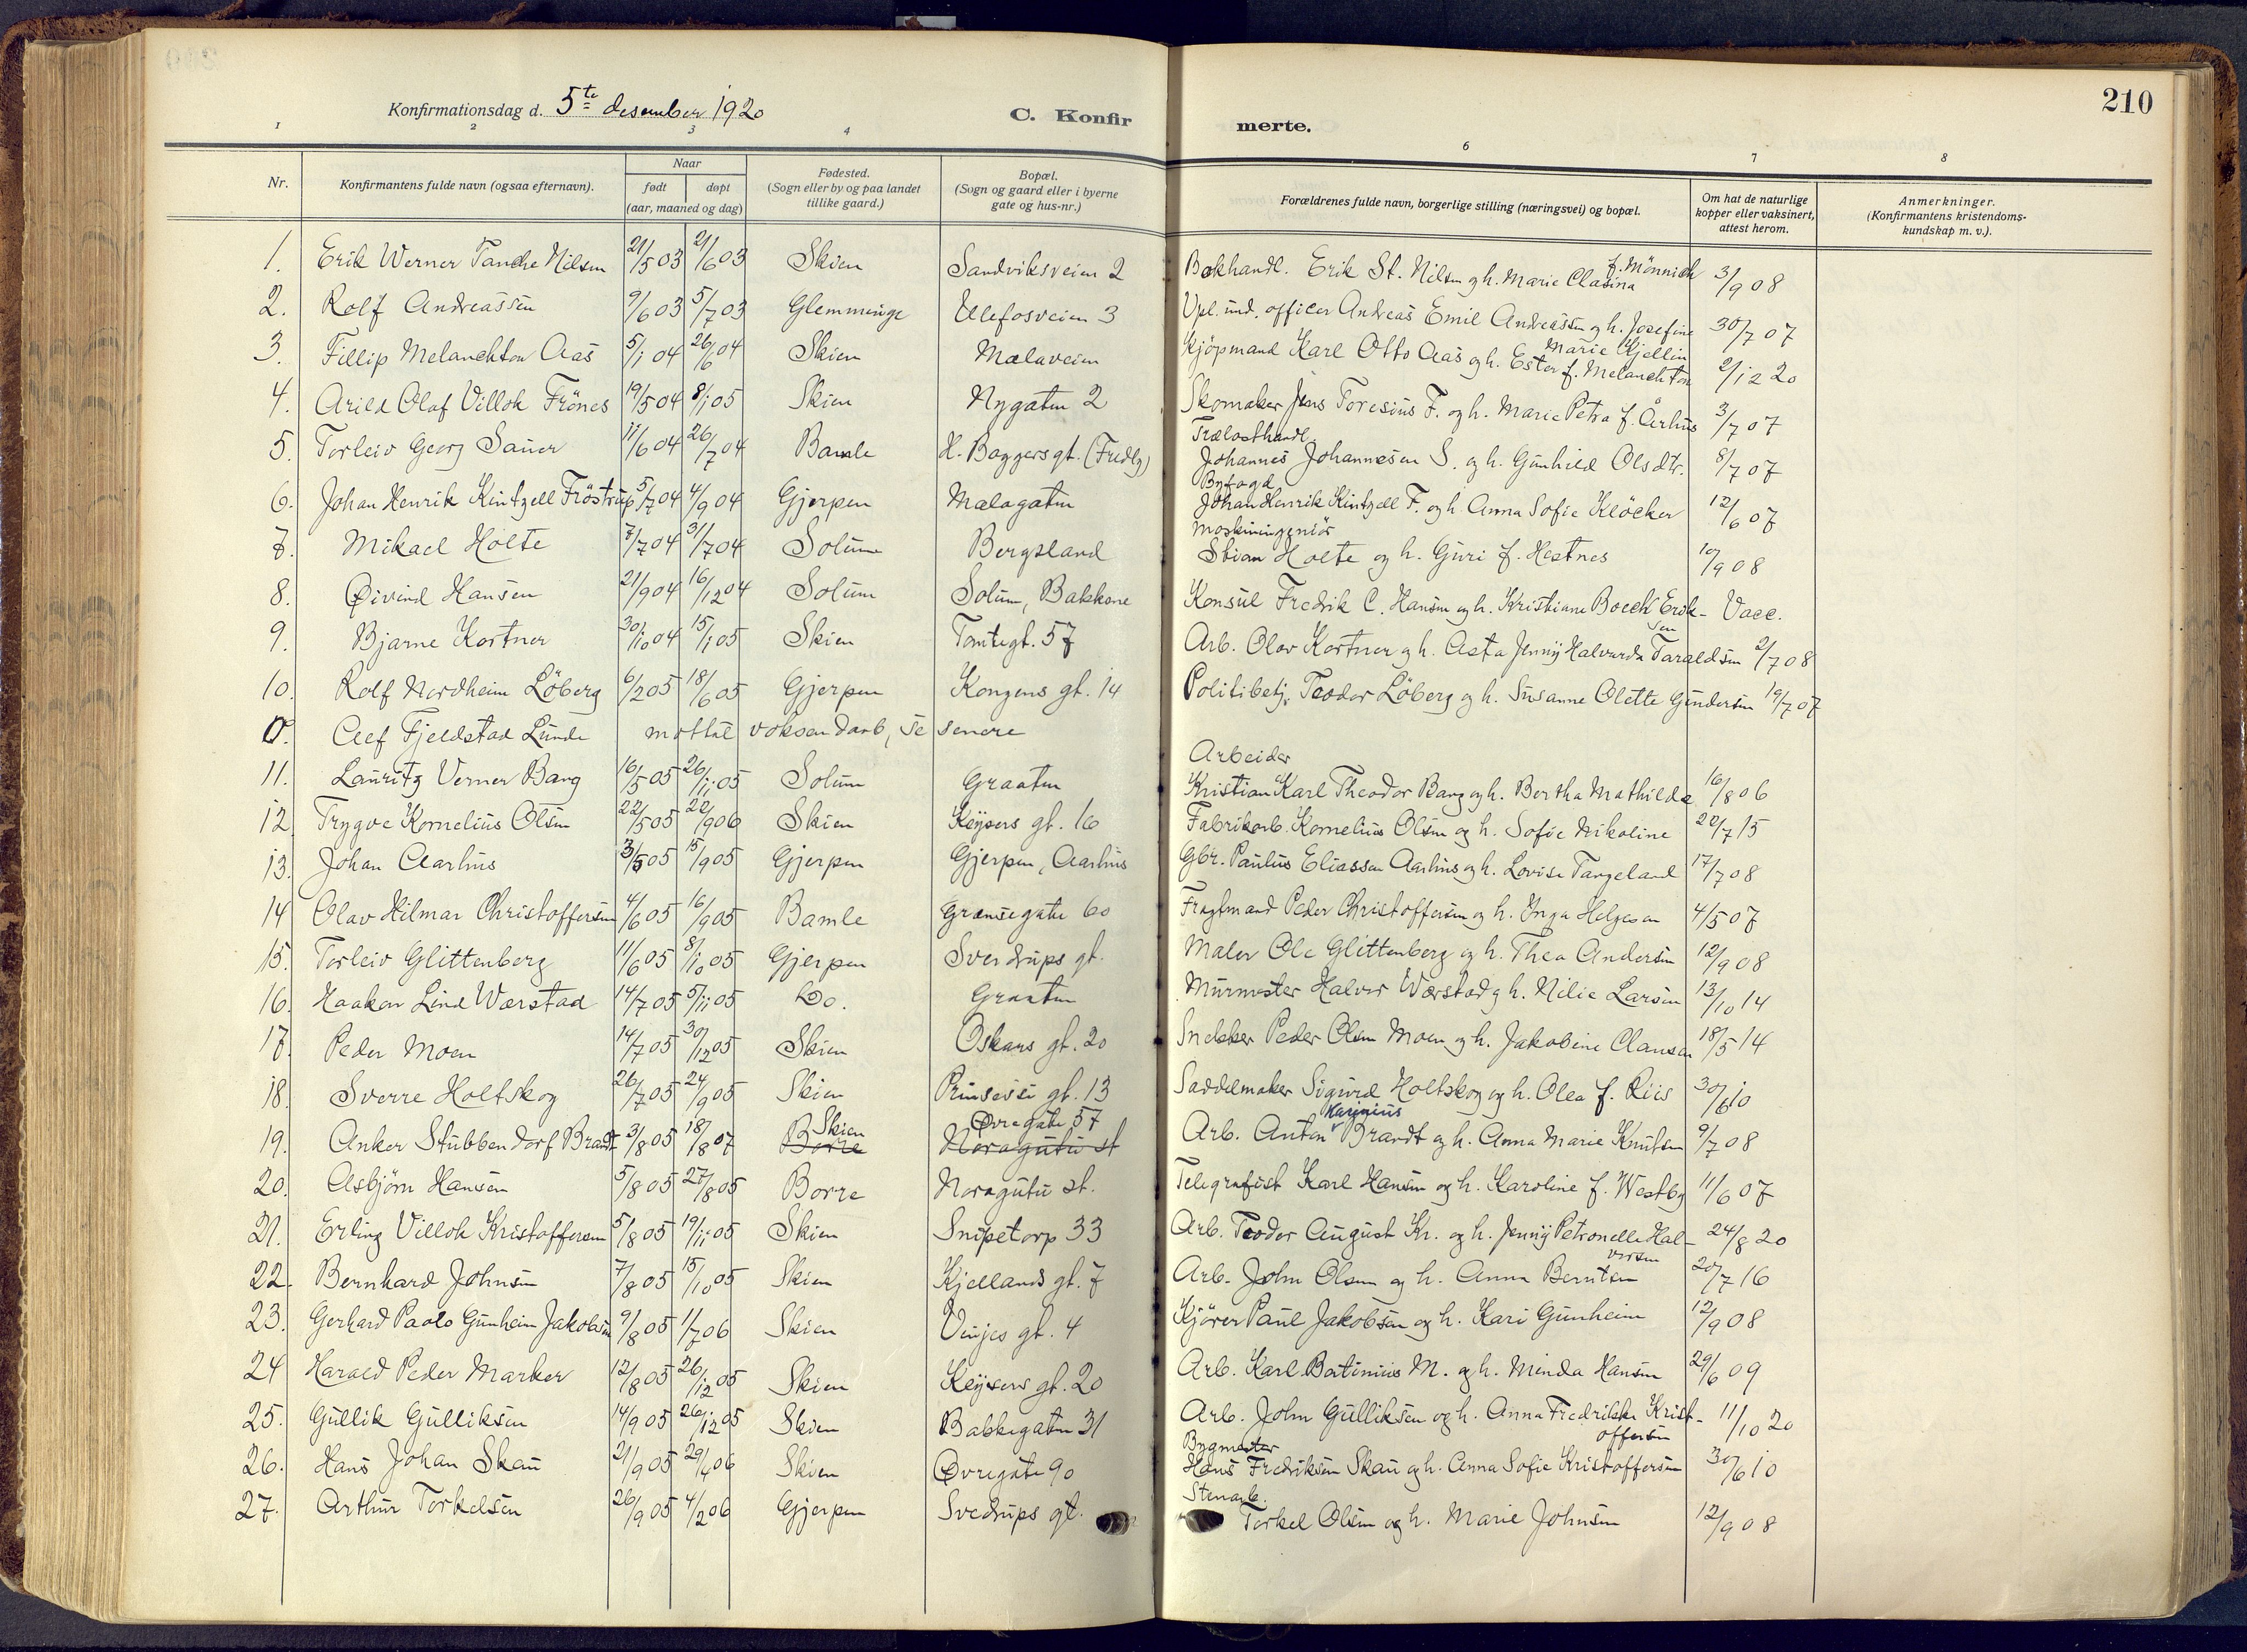 210
Konfirmationsdag d. 5te desember 1920
C. Konfirmerte.
1 2 3 4 6 7 8
Nr. Konfirmantens fulde navn (ogsaa efternavn). Naar født døpt (aar, maaned og dag) Fødested. (Sogn eller by og paa landet tillike gaard.) Bopæl. (Sogn og gaard eller i byerne gate og hus-nr.) Forældrenes fulde navn, borgerlige stilling (næringsvei) og bopæl. Om hat de naturlige kopper eller vaksinert, attest herom. Anmerkninger. (Konfirmantens kristendomskundskap m. v.).
1. Erik Werner Tanche Nilsen 21/5 03 21/6 03 Skien Sandviksveien 2 Bokhandl. Erik St. Nilsen og h. Marie Clasina f. Mönnich 3/9 08
2. Rolf Andreassen 9/6 03 5/7 03 Glemminge Ulefosveien 3 Vpl. und. officer Andreas Emil Andreassen og h. Josefine Marie Kjellin 30/7 07
3. Fillip Melanchton Aas 5/1 04 26/6 04 Skien Mælaveien Kjöpmand Karl Otto Aas og h. Ester f. Melanchton 2/12 20
4. Arild Olaf Villoh Frönes 19/5 04 8/1 05 Skien Nygaten 2 Skomaker Jens Toresius F. og h. Marie Petra f. Århus 3/7 07
5. Torleiv Georg Sauer 11/6 04 26/7 04 Bamle H. Baggersgt. (Fredly) Trælasthandl. Johannes Johannesen S. og h. Gunhild Olsdtr. 8/7 07
6. Johan Henrik Kintzell Fröstrup 5/7 04 4/9 04 Gjerpen Mælagaten Byfogd Johan Henrik Kintzell F. og h. Anna Sofie Klöcker 12/6 07
7. Mikael Holte 7/7 04 31/7 04 Solum Bergsland Maskiningeniör Stian Holte og h. Guri f. Hestnes 10/9 08
8. Øivind Hansen 21/9 04 16/12 04 Solum Solum, Bakkane Konsul Fredrik C. Hansen og h. Kristiane Boeck Eriksen Vacc.
9. Bjarne Kortner 30/10 04 15/1 05 Skien Tomtegt. 57 Arb. Olav Kortner og h. Asta Jenny Halvarda Taraldsen 2/7 08
10. Rolf Nordheim Löberg 6/2 05 18/6 05 Gjerpen Kongens gt. 14 Politibetj. Teodor Löberg og h. Susanne Olette Gundersen 19/7 07
0. Alf Fjeldstad Lunde mottat voksendaab, se senere
11. Lauritz Verner Bang 16/5 05 26/11 05 Solum Graaten Arbeider Kristian Karl Theodor Bang og h. Bertha Mathilde 16/8 06
12. Trygve Kornelius Olsen 22/5 05 22/9 06 Skien Keysers gt. 16 Fabrikarb. Kornelius Olsen og h. Sofie Nikoline 22/7 15
13. Johan Aarhus 3/5 05 15/9 05 Gjerpen Gjerpen, Aarhus Gbr. Paulus Eliassen Aarhus og h. Lovise Tangeland 17/7 08
14 Olav Hilmar Christoffersen 4/6 05 16/9 05 Bamle Grænsegate 60 Fragtmand Peder Christoffersen og h. Inga Helgesen 4/5 07
15. Torleiv Glittenberg 11/6 05 8/10 05 Gjerpen Sverdrups gt. Maler Ole Glittenberg og h. Thea Andersen 12/9 08
16. Haakon Lind Wærstad 14/7 05 5/11 05 Do. Graaten Murmester Halvor Wærstad og h. Nilie Larsen 13/10 14
17. Peder Moen 14/7 05 30/12 05 Skien Oskars gt. 20 Snekker Peder Olsen Moen og h. Jakobine Clausen 18/5 14
18. Sverre Holtskog 26/7 05 24/9 05 Skien Prinsesse gt. 13 Saddelmaker Sigurd Holtskog og h. Olea f. Riis 30/6 10
19. Anker Stubbendorf Brandt 3/8 05 18/8 07 Borre Skien Noragutu st Øvregate 57 Arb. Anton Karinius Brandt og h. Anna Marie Knutsen 9/7 08
20. Asbjörn Hansen 5/8 05 27/8 05 Borre Noragutu st. Telegrafist Karl Hansen og h. Karoline f. Westby 11/6 07
21. Erling Villoh Kristoffersen 5/8 05 19/11 05 Skien Snipetorp 33 Arb. Teodor August Kr. og h. Jenny Petronelle Halvorsen 24/8 20
22. Bernhard Johnsen 7/8 05 15/10 05 Skien Kjellands gt. 7 Arb. John Olsen og h. Anna Berntsen 20/7 16
23. Gerhard Paolo Gunheim Jakobsen 9/8 05 1/7 06 Skien Vinjes gt. 4 Kjörer Paul Jakobsen og h. Kari Gunheim 12/9 08
24 Harald Peder Marker 12/8 05 26/12 05 Skien Keysers gt. 20 Arb. Karl Bertinius M. og h. Minda Hansen 29/6 09
25. Gullik Gulliksen 14/9 05 26/12 05 Skien Bakkegaten 31 Arb. John Gulliksen og h. Anna Fredrikke Kristoffersen 11/10 20
26. Hans Johan Skau 21/9 05 29/4 06 Skien Øvregate 90 Bygmester Hans Fredriksen Skau og h. Anna Sofie Kristoffersen 30/6 10
27. Arthur Torkelsen 26/9 05 4/2 06 Gjerpen Svedrups gt. Stenarb. Torkel Olsen og h. Marie Johnsen 12/9 08